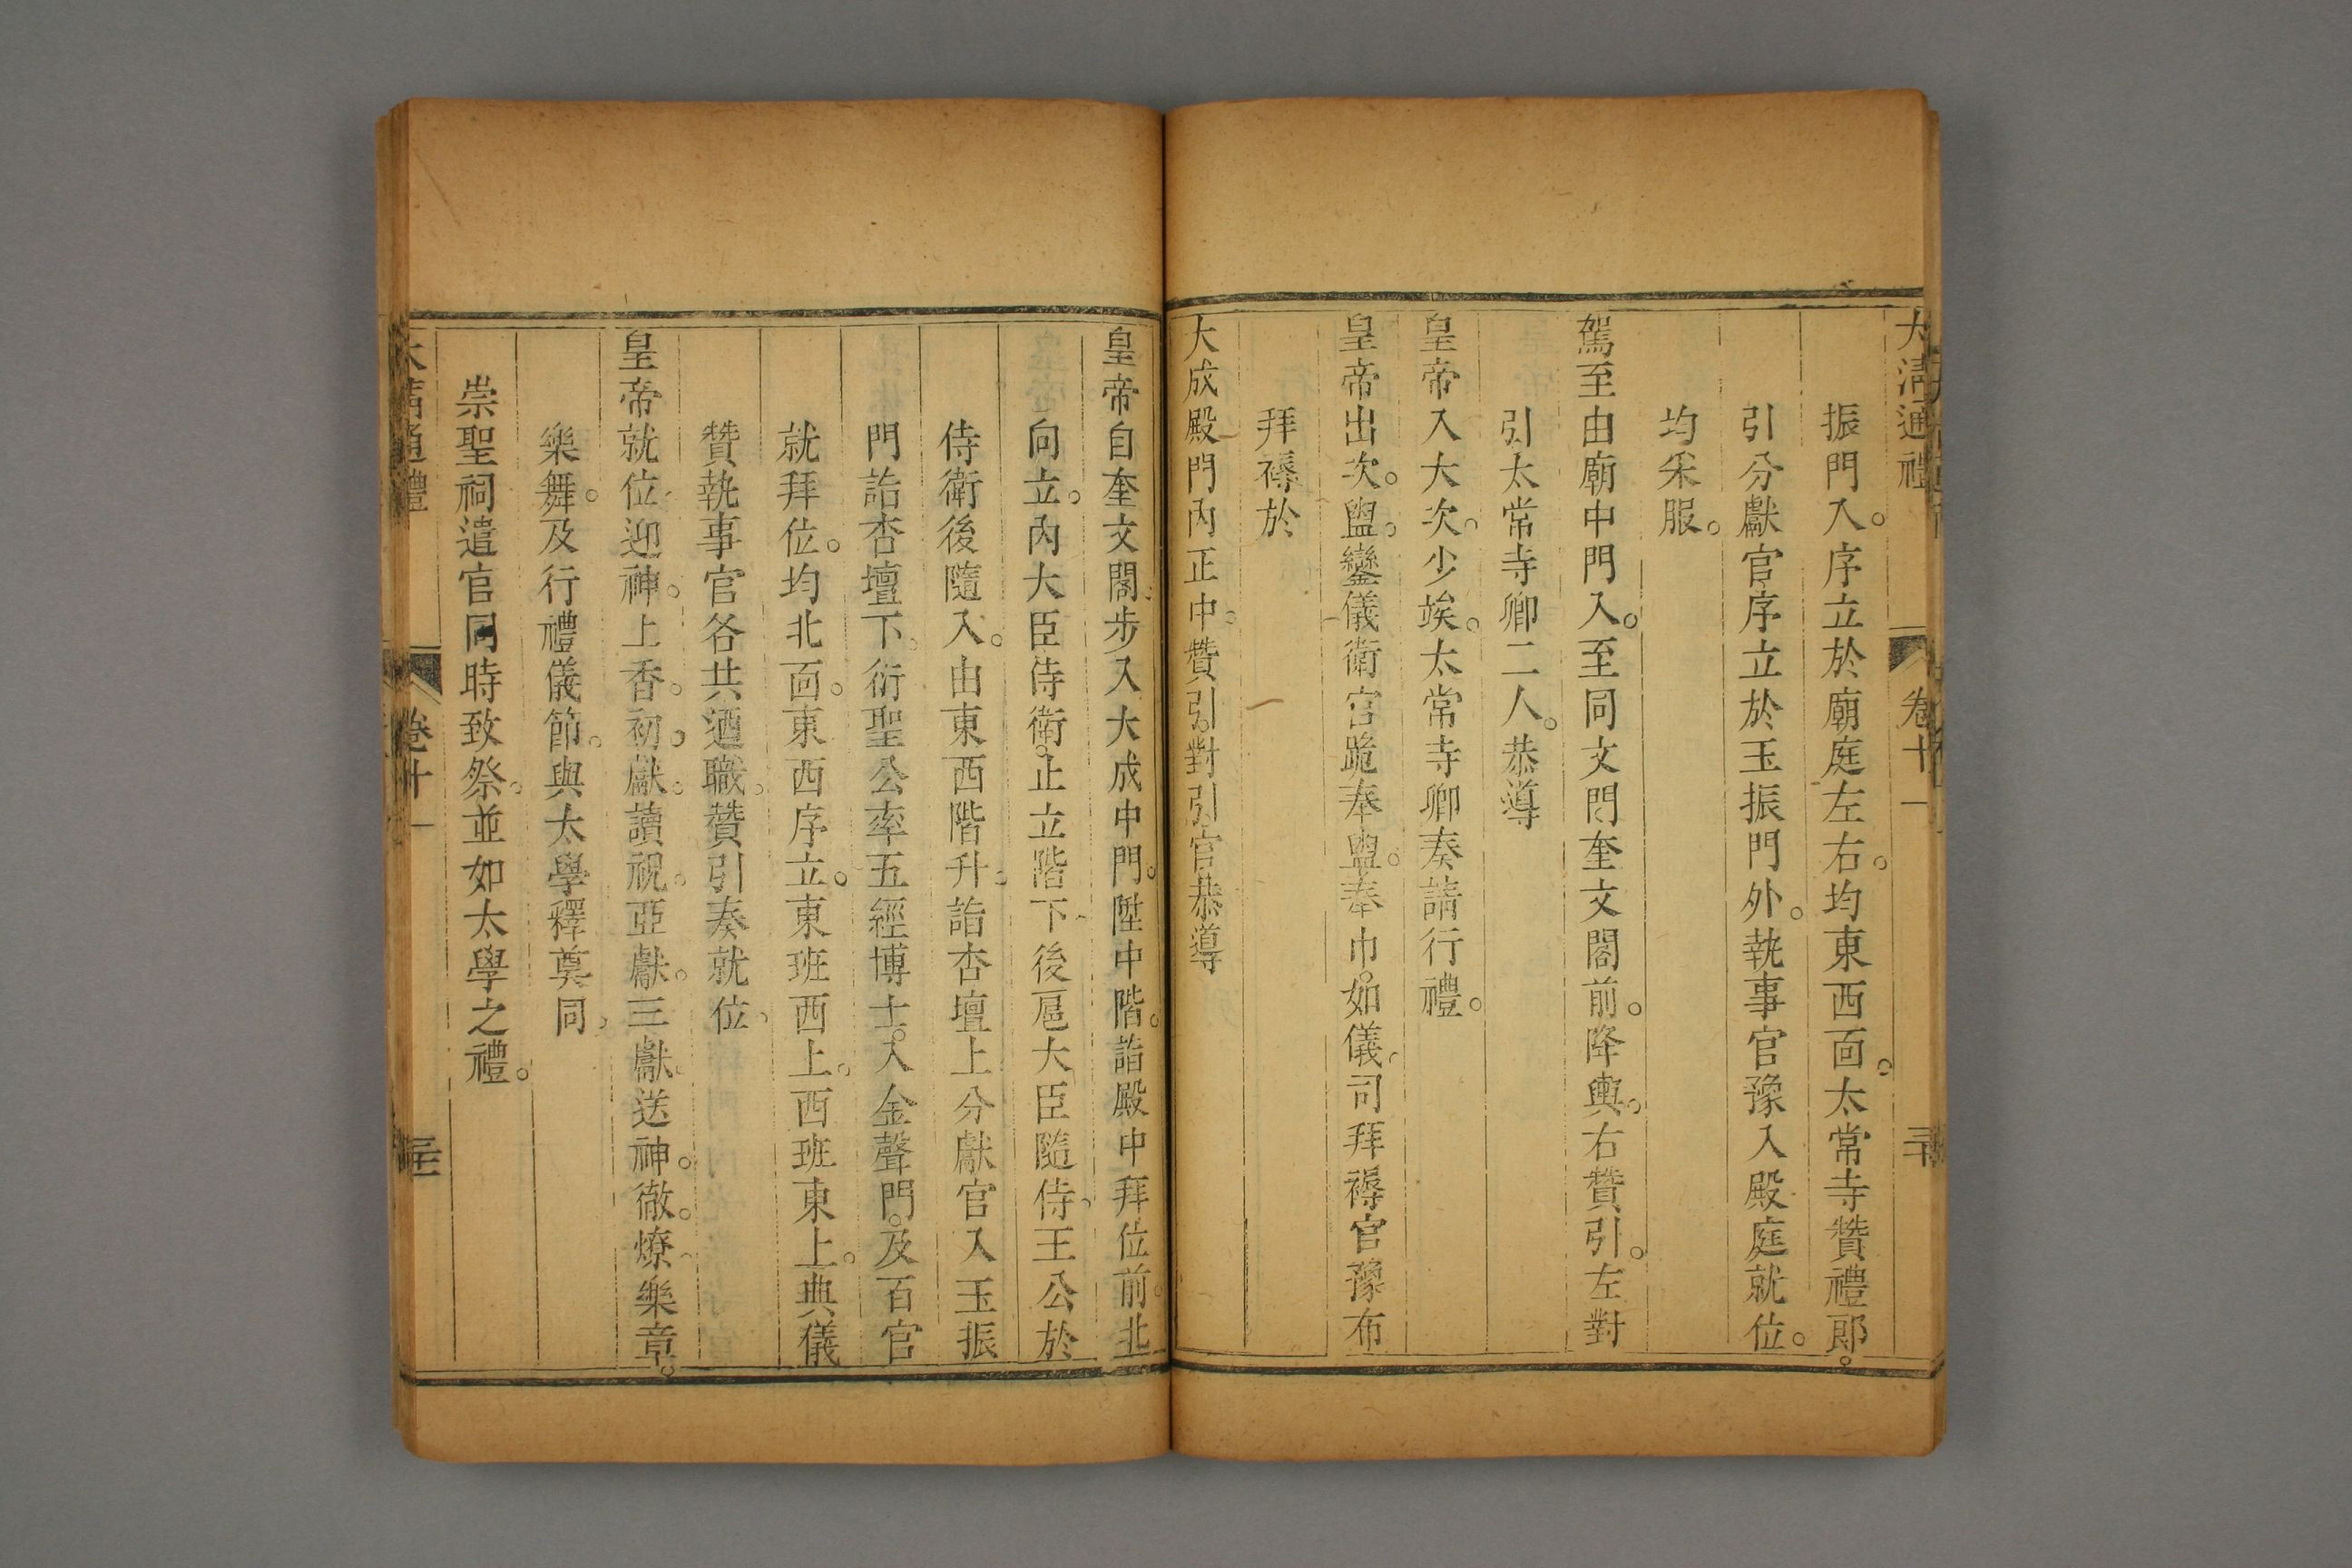 大清通禮　卷十一　三十
振門入。序立於廟庭左右。均東西面。太常寺贊禮郎。
引分獻官序立於玉振門外。執事官豫入殿庭就位。
均采服。
駕至由廟中門入。至同文門奎文閣前。降輿。右贊引。左對
引太常寺卿二人。恭導
皇帝入大次。少竢。太常寺卿奏請行禮。
皇帝出次。盥。鑾儀衛官跪奉盥。奉巾。如儀。司拜褥官豫布
拜褥於
大成殿門內正中。贊引。對引官恭導
皇帝自奎文閣。步入大成中門。陞中階。詣殿中拜位前。北
向立。內大臣侍衛。止立階下。後扈大臣隨侍。王公於
侍衛後隨入。由東西階升。詣杏壇上分獻官入玉振
門詣杏壇下。衍聖公率五經博士。入金聲門。及百官
就拜位。均北面。東西序立。東班西上。西班東上。典儀
贊執事官各共迺職。贊引奏就位。
皇帝就位。迎神。上香。初獻。讀祝。亞獻。三獻。送神。徹。燎。樂章。
樂舞。及行禮儀節。與太學釋奠同。
崇聖祠遣官同時致祭。並如太學之禮。
大清通禮　卷十一